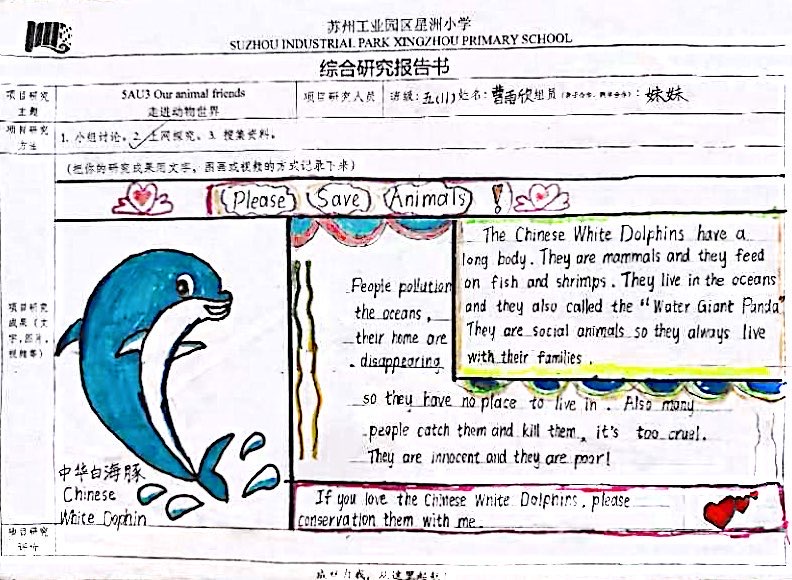 苏州工业园区星洲小学
SUZHOU INDUSTRIAL PARK XINGZHOU PRIMARY SCHOOL
综合研究报告书
项目研究主题
5AU3 Our animal friends
走进动物世界
项目研究人员
班级：五(11) 姓名：曹雨欣 组员 ：妹妹
项目研究方法
1. 小组讨论。2. 上网探究。3. 搜集资料。
(把你的研究成果用文字、图画或视频的方式记录下来)
项目研究成果（文字，图片，视频等）
Please Save Animals !
The Chinese White Dolphins have a
long body. They are mammals and they feed
on fish and shrimps. They live in the oceans
and they also called the "Water Giant Panda"
They are social animals so they always live
with their families .
People pollution
the oceans,
their home are
disappearing
so they have no place to live in . Also many
people catch them and kill them , it's too cruel.
They are innocent and they are poor!
中华白海豚
Chinese
White Dophin
If you love the Chinese White Dolphins, please
conservation them with me.
项目研究